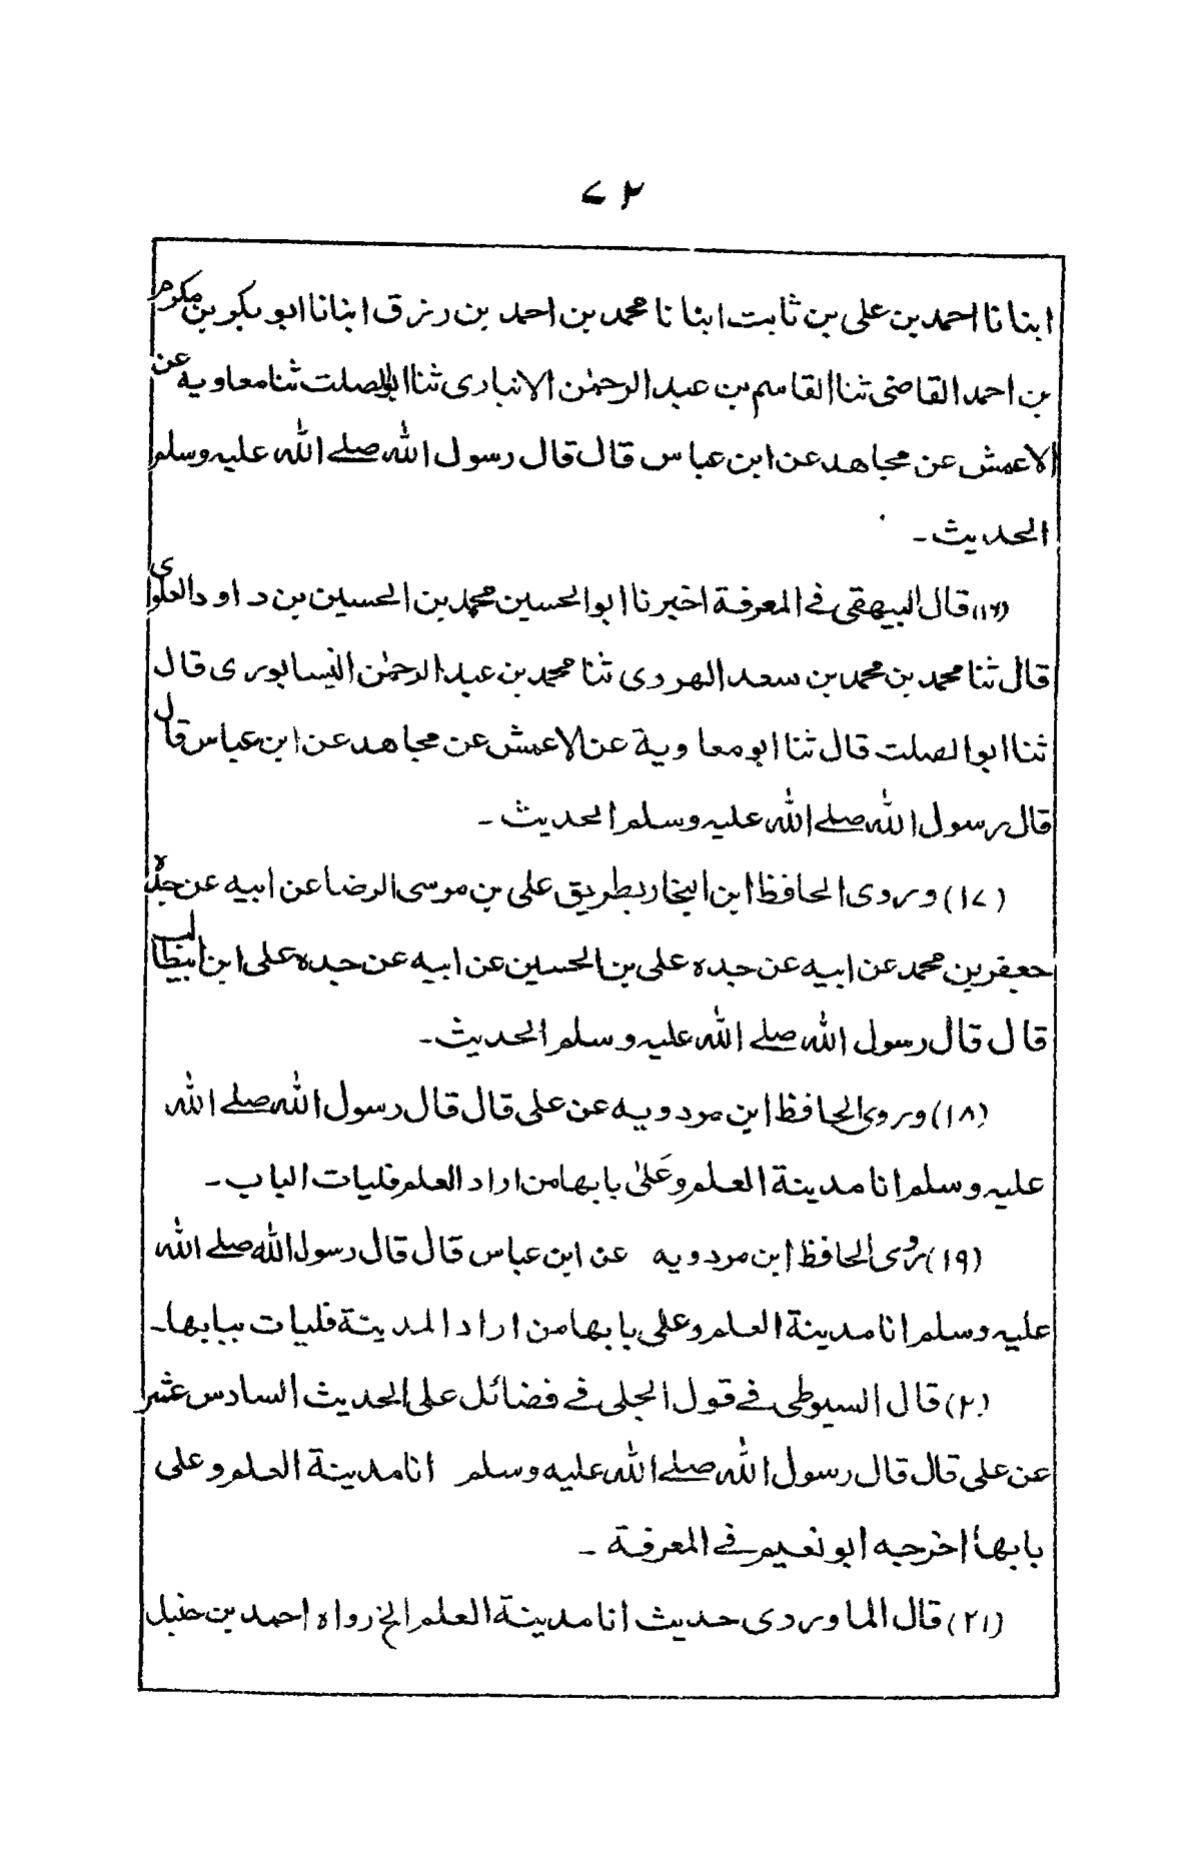 ۷۲
انبانا احمد بن علی بن ثابت انبا نا محمد بن احمد بن رزق انبانا ابو بکر بن مکرم
بن احمد القاضی ثنا القاسم بن عبد الرحمٰن الانباری ثنا ابوالصلت ثنا معاویه عن
الاعمش عن مجاهد عن ابن عباس قال قال رسول الله صلے الله علیه وسلم
الحدیث ۔
(۱۶) قال البیهقی فے المعرفة اخبرنا ابو الحسین محمد بن الحسین بن داود العلوی
قال ثنا محمد بن محمد بن سعد الهروی ثنا محمد بن عبد الرحمٰن النیسابوری قال
ثنا ابوالصلت قال ثنا ابو معاویة عن الاعمش عن مجاهد عن ابن عباس قال
قال رسول الله صلے الله علیه وسلم الحدیث ۔
(۱۷) وروی الحافظ ابن النجار بطریق علی بن موسی الرضا عن ابیه عن جده
جعفر بن محمد عن ابیه عن جده علی بن الحسین عن ابیه عن جده علی ابن ابیطالب
قال قال رسول الله صلے الله علیه وسلم الحدیث ۔
(۱۸) وروی الحافظ ابن مردویه عن علی قال قال رسول الله صلے الله
علیه وسلم انا مدینة العلم وعَلیٰ بابها من اراد العلم فلیات الباب ۔
(۱۹) روی الحافظ ابن مردویه عن ابن عباس قال قال رسول الله صلے الله
علیه وسلم انا مدینة العلم وعلی بابها من اراد المدینة فلیات ببابها ۔
(۲۰) قال السیوطی فے قول الجلی فے فضائل علی الحدیث السادس عشر
عن علی قال قال رسول الله صلے الله علیه وسلم انا مدینة العلم وعلی
بابها اخرجه ابو نعیم فے المعرفة ۔
(۲۱) قال الماوردی حدیث انا مدینة العلم الخ رواه احمد بن حنبل